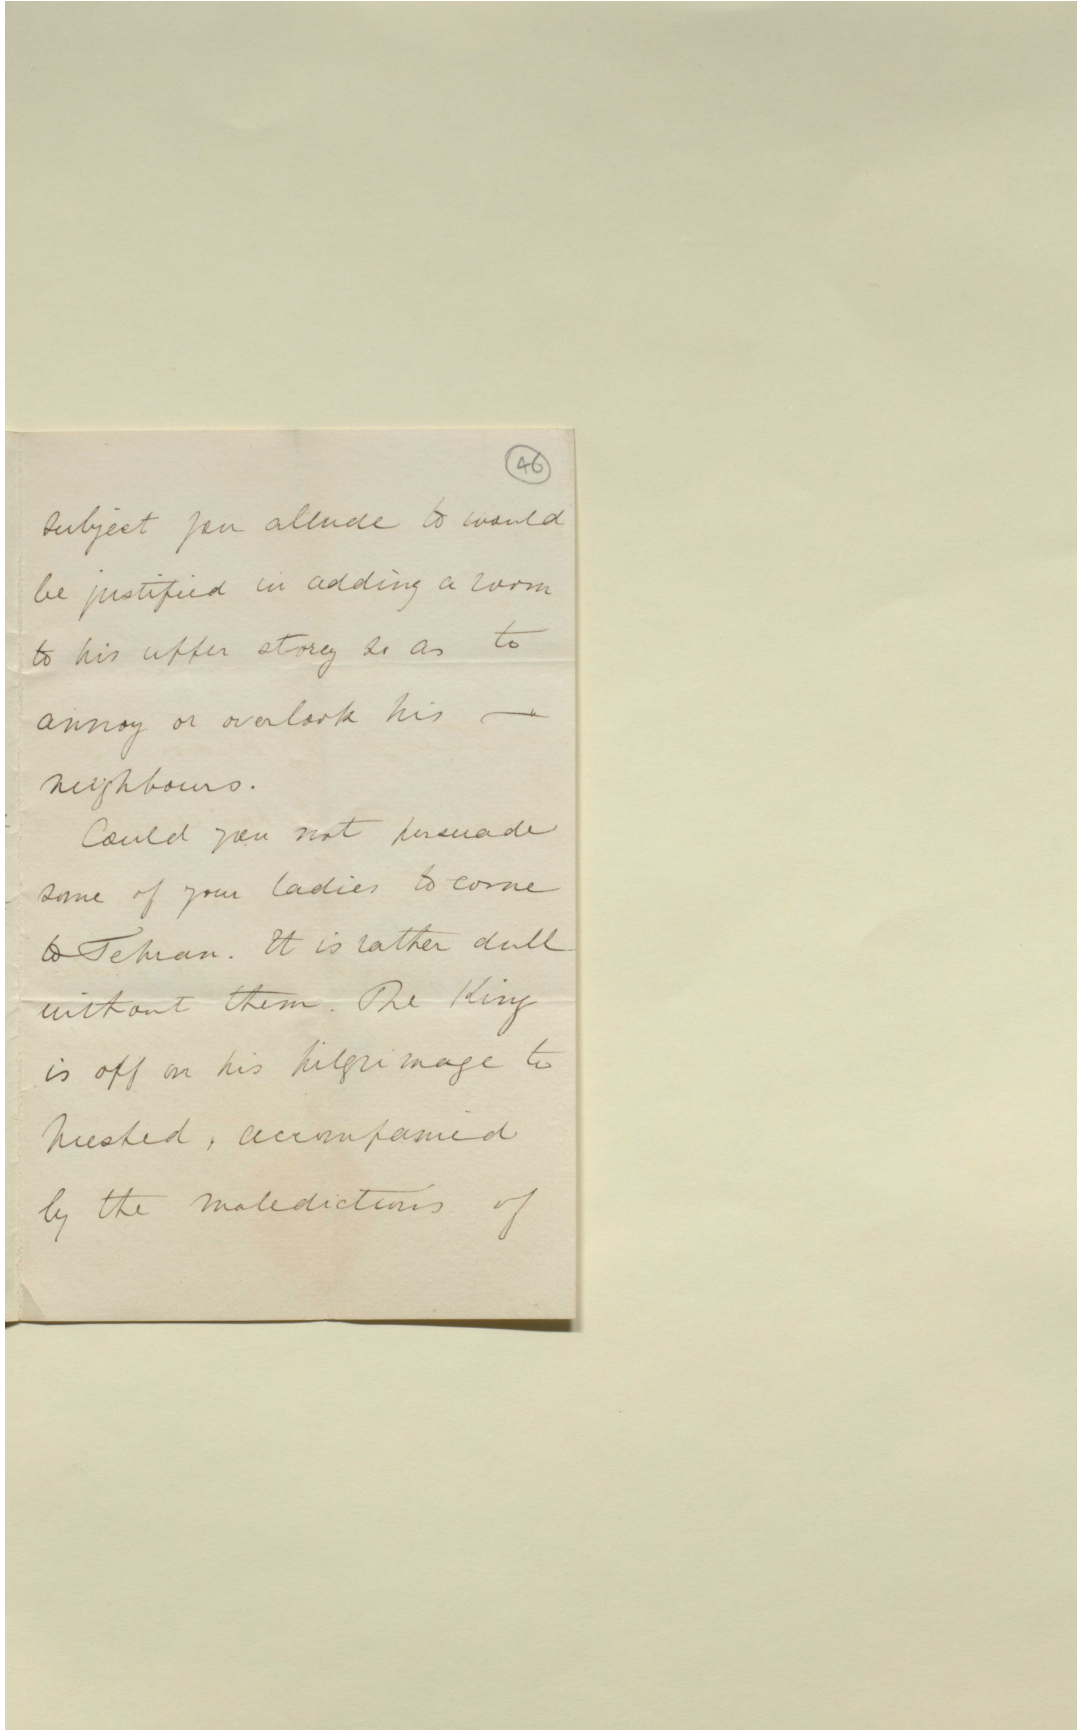 46
subject you allude to would
be justified in adding a room
to his upper storey so as to
annoy or overlook his —
neighbours.
Could you not persuade
some of your ladies to come
to Tehran. It is rather dull
without them. The King
is off on his pilgrimage to
Meshed, accompanied
by the maledictions of